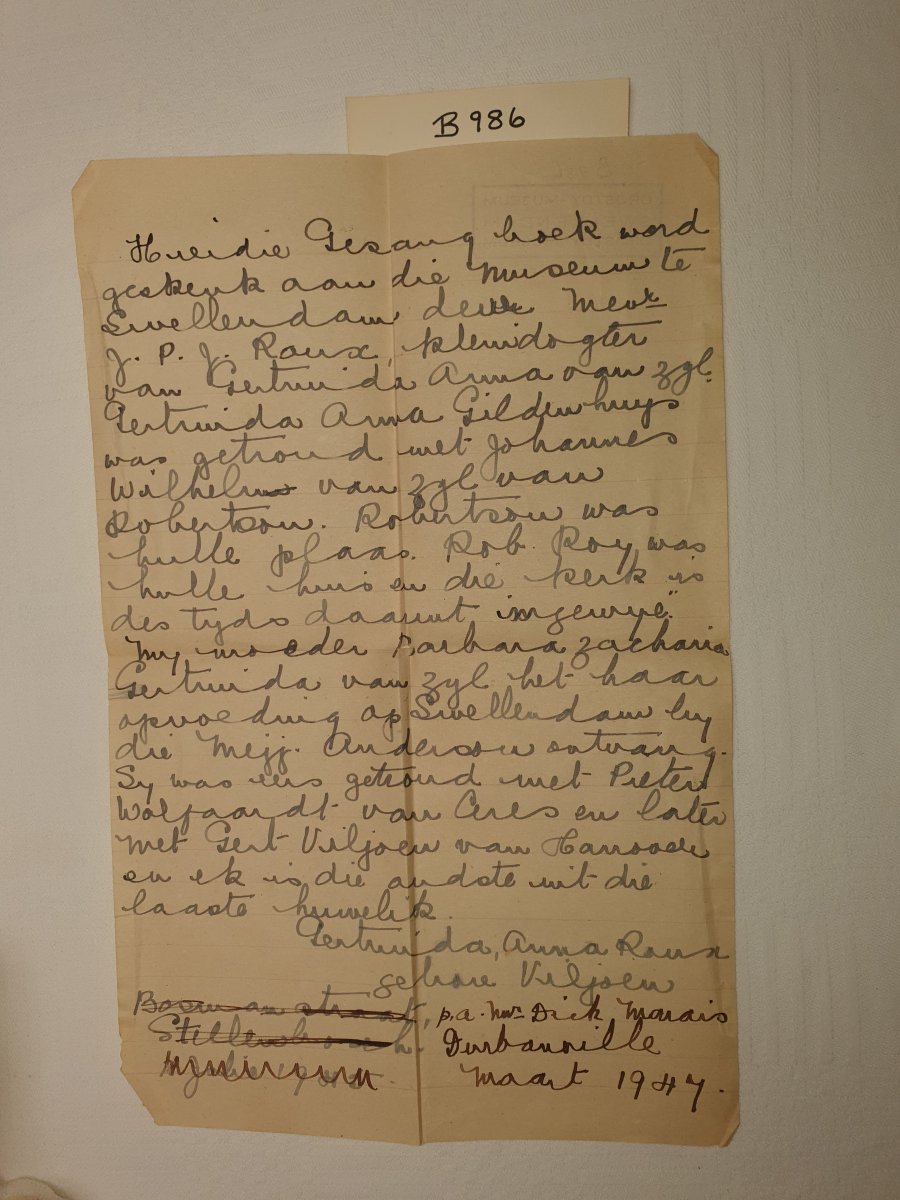 B 986
Hierdie Gesang boek word
geskenk aan die Museum te
Swellendam deur Mevr
J. P. J. Roux, kleindogter
van Gertruida Anna van Zyl.
Gertruida Anna Gildenhuys
was getroud met Johannes
Wilhelm van Zyl van
Robertson. Robertson was
hulle plaas. Rob Roy was
hulle huis en die kerk is
des tyds daaruit ingewye".
My moeder Barbara Zacharia
Gertruida van Zyl het haar
opvoeding op Swellendam by
die Mejj. Anderson ontvang.
Sy was eers getroud met Pieter
Wolfaardt van Ceres en later
met Gert Viljoen van
en ek is die oudste uit die
laaste huwelik.
Gertruida, Anna Roux
gebore Viljoen
Boom an straat, p.a. Mev Dick Marais
Stellenbosch. Durbanville
Maart 1947.